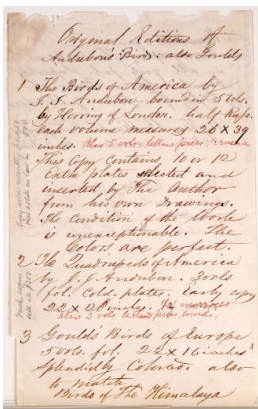 Original Editions of
Audubon's Birds: also Gould's
1 The Birds of America by
J. J. Audubon bound in 5 vols.
by Herring of London. half Russ.
Each volume measures 26 X 39
inches. Also 5 vols. letter press,
This Copy Contains 10 or 12
Extra plates selected and
inserted by The Author
from his own Drawings.
The Condition of the Work
is unexceptionable. The
Colors are perfect.
2 The Quadrupeds of America
by J. J. Audubon. 3 vols
fol. Cold. plates. Early copy
22 x 28 inches. 1/2 morocco
also 3 vols letter press, bound.
3 Gould's Birds of Europe
5 vols. fol. 22 x 16 inches
Splendidly Colored. also
to match
Birds of The Himalaya